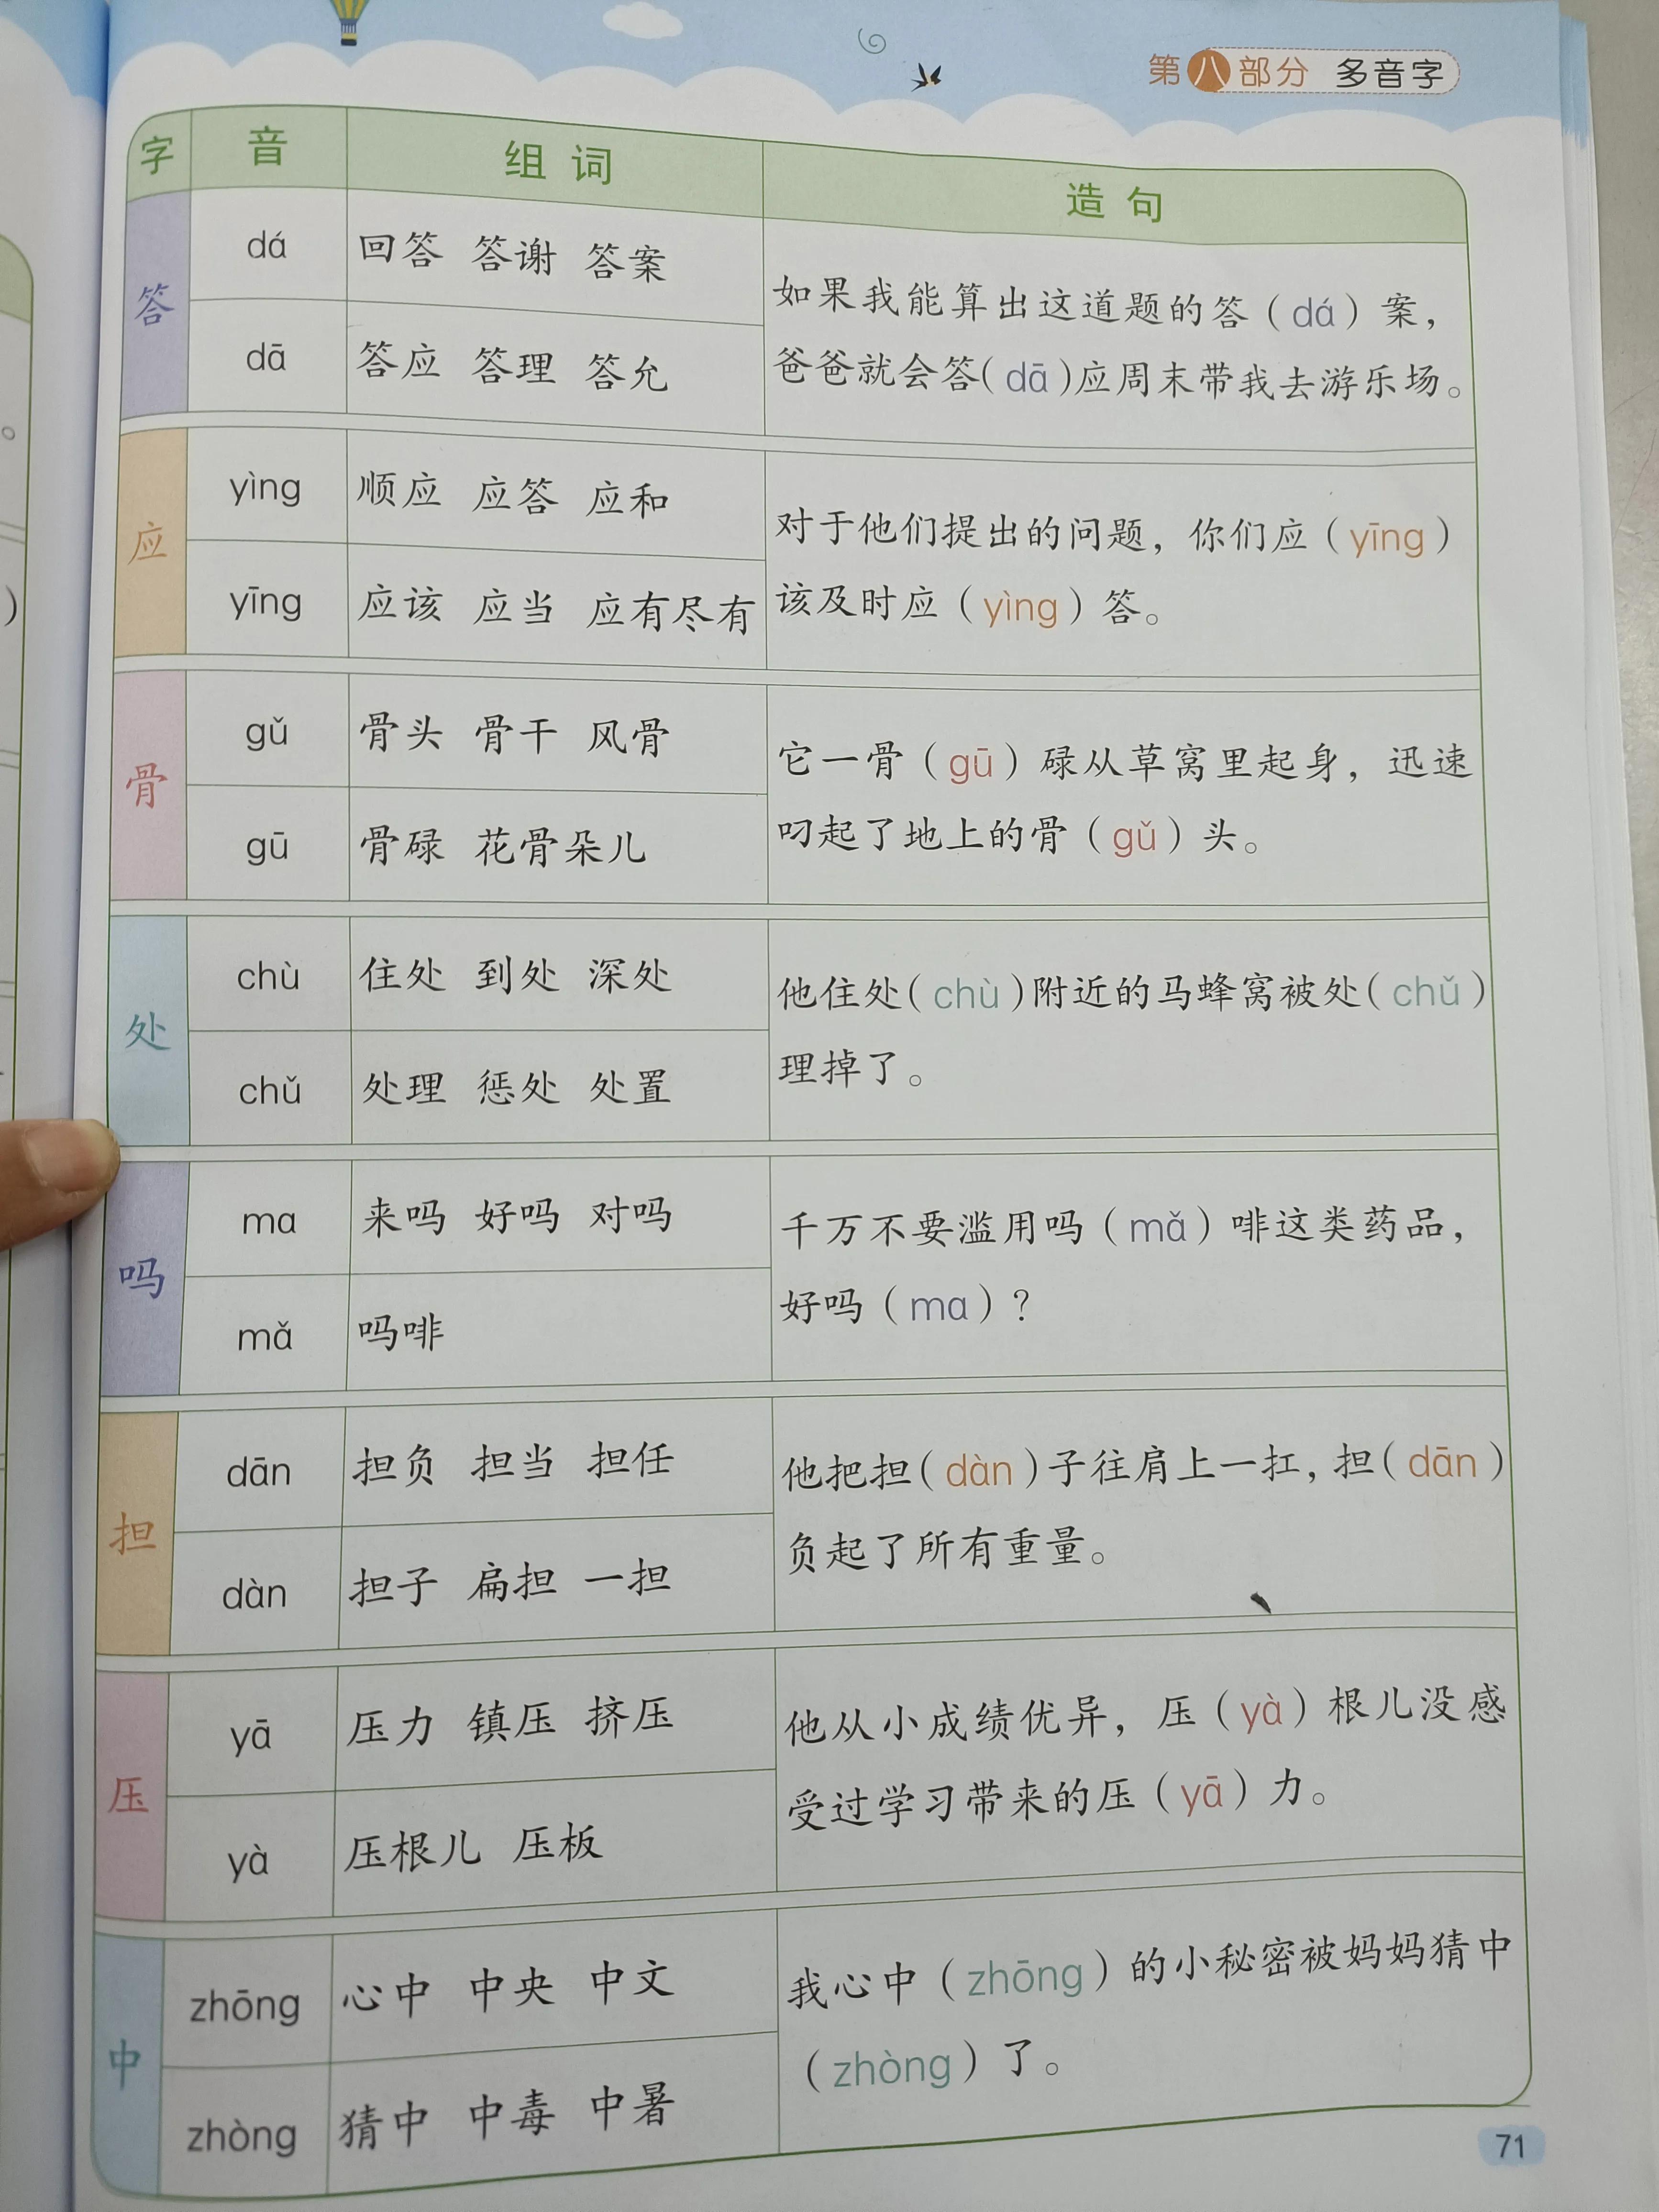 第八部分 多音字
字 音 组词 造句
答
dá 回答 答谢 答案
dā 答应 答理 答允
如果我能算出这道题的答（dá）案，
爸爸就会答（dā）应周末带我去游乐场。
应
yìng 顺应 应答 应和
yīng 应该 应当 应有尽有
对于他们提出的问题，你们应（yīng）
该及时应（yìng）答。
骨
gǔ 骨头 骨干 风骨
gū 骨碌 花骨朵儿
它一骨（gū）碌从草窝里起身，迅速
叼起了地上的骨（gǔ）头。
处
chù 住处 到处 深处
chǔ 处理 惩处 处置
他住处（chù）附近的马蜂窝被处（chǔ）
理掉了。
吗
ma 来吗 好吗 对吗
mǎ 吗啡
千万不要滥用吗（mǎ）啡这类药品，
好吗（ma）？
担
dān 担负 担当 担任
dàn 担子 扁担 一担
他把担（dàn）子往肩上一扛，担（dān）
负起了所有重量。
压
yā 压力 镇压 挤压
yà 压根儿 压板
他从小成绩优异，压（yà）根儿没感
受过学习带来的压（yā）力。
中
zhōng 心中 中央 中文
zhòng 猜中 中毒 中暑
我心中（zhōng）的小秘密被妈妈猜中
（zhòng）了。
71